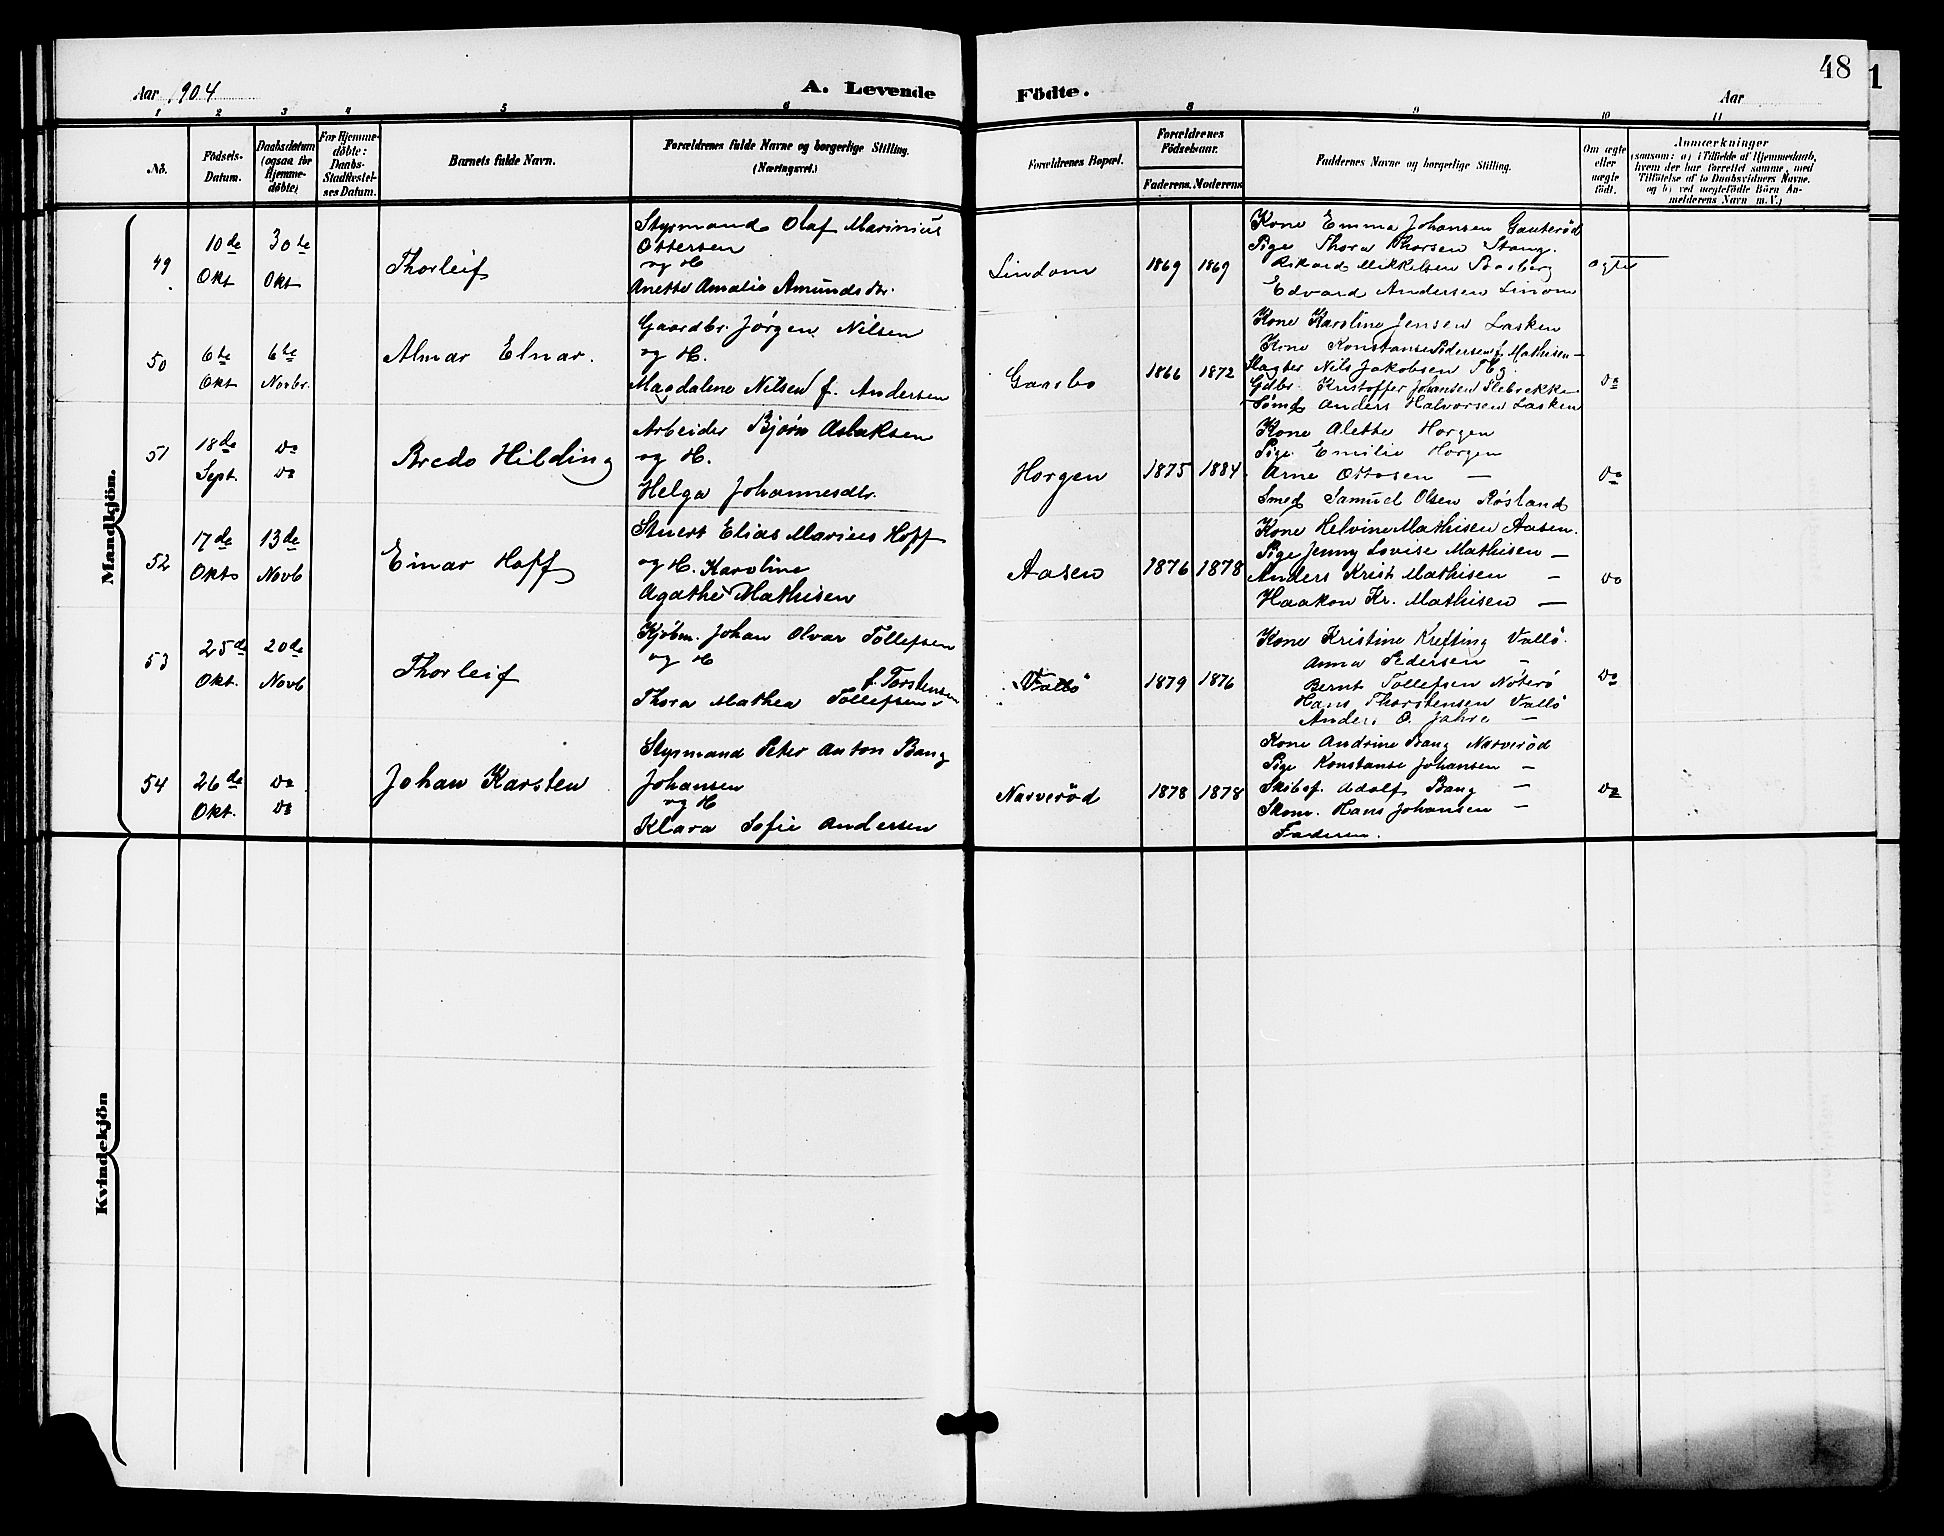 Aar 1904
A. Levende
Födte.
Aar
48
1
1 2 3 4 5 6 8 9 10 11
No.
Födsels-Datum.
Daabsdatum (ogsaa for Hjemmedöbte)
For Hjemmedöbte: Daabs-Stadfestelses Datum.
Barnets fulde Navn.
Forældrenes fulde Navne og borgerlige Stilling. (Næringsvei.)
Forældrenes Bopæl.
Forældrenes Födselsaar.
Faderens. Moderens.
Faddernes Navne og borgerlige Stilling.
Om ægte eller uægte födt.
Anmærkninger
(saasom: a) i Tilfælde af Hjemmedaab,
hvem der har forrettet samme, med
Tilföielse af to Daabsvidners Navne.
og b) ved uægtefödte Börn An-
melderens Navn m. V.)
Mandkjön.
49
10de Okt
30te Okt
Thorleif
Styrmand Olaf Marinius
Ottersen
og H
Anette Amalie Amundsdtr.
Lindom
1869 1869
Kone Emma Johansen Gauteröd
Pige Thora Thorsen Stang.
Rikard Mikkelsen Basberg
Edvard Andersen Linom
ægte
50
6te Okt
6te Novbr.
Almar Elnar.
Gaardbr. Jørgen Nilsen
og H.
Magdalene Nilsen f. Andersen
Gaasbo
1866 1872
Kone Karoline Jensen Lasken
Kone Konstanse Pedersen f. Mathisen —
Slagter Nils Jakobsen Tbg.
Gdbr. Kristoffer Johansen Slebrekke
Sømd Anders Halvorsen Lasken
do
51
18de Sept.
do do
Bredo Hilding
Arbeider Bjørn Aslaksen
og H.
Helga Johannesdtr.
Horgen
1875 1884
Kone Alette Horgen
Pige Emilie Horgen
Arne Ottosen —
Smed Samuel Olsen Røsland
do
52
17de Okt
13de Novb
Einar Hoff
Stuert Elias Marius Hoff
og H. Karoline
Agathe Mathisen
Aasen
1876 1878
Kone Helvine Mathisen Aasen.
Pige Jenny Lovise Mathisen —
Anders Krist Mathisen —
Haakon Kr. Mathisen —
do
53
25de Okt.
20de Novb
Thorleif
Kjøbm. Johan Olvar Tollefsen
og H
f. Torstensen
Thora Mathea Tollefsen
Vallö
1879 1876
Kone Kristine Krefting Vallö.
Anna Pedersen —
Bernt Tollefsen Nöterö
Hans Thorstensen Vallö
Anders O. Jahre —
do
54
26de Okt.
do do
Johan Karsten
Styrmand Peter Anton Bang
Johansen
og H
Klara Sofie Andersen
Narveröd
1878 1878
Kone Andrine Bang Narveröd
Pige Konstanse Johansen —
Skibsf. Adolf Bang —
Skom. Hans Johansen —
Faderen.
do
Kvindekjön